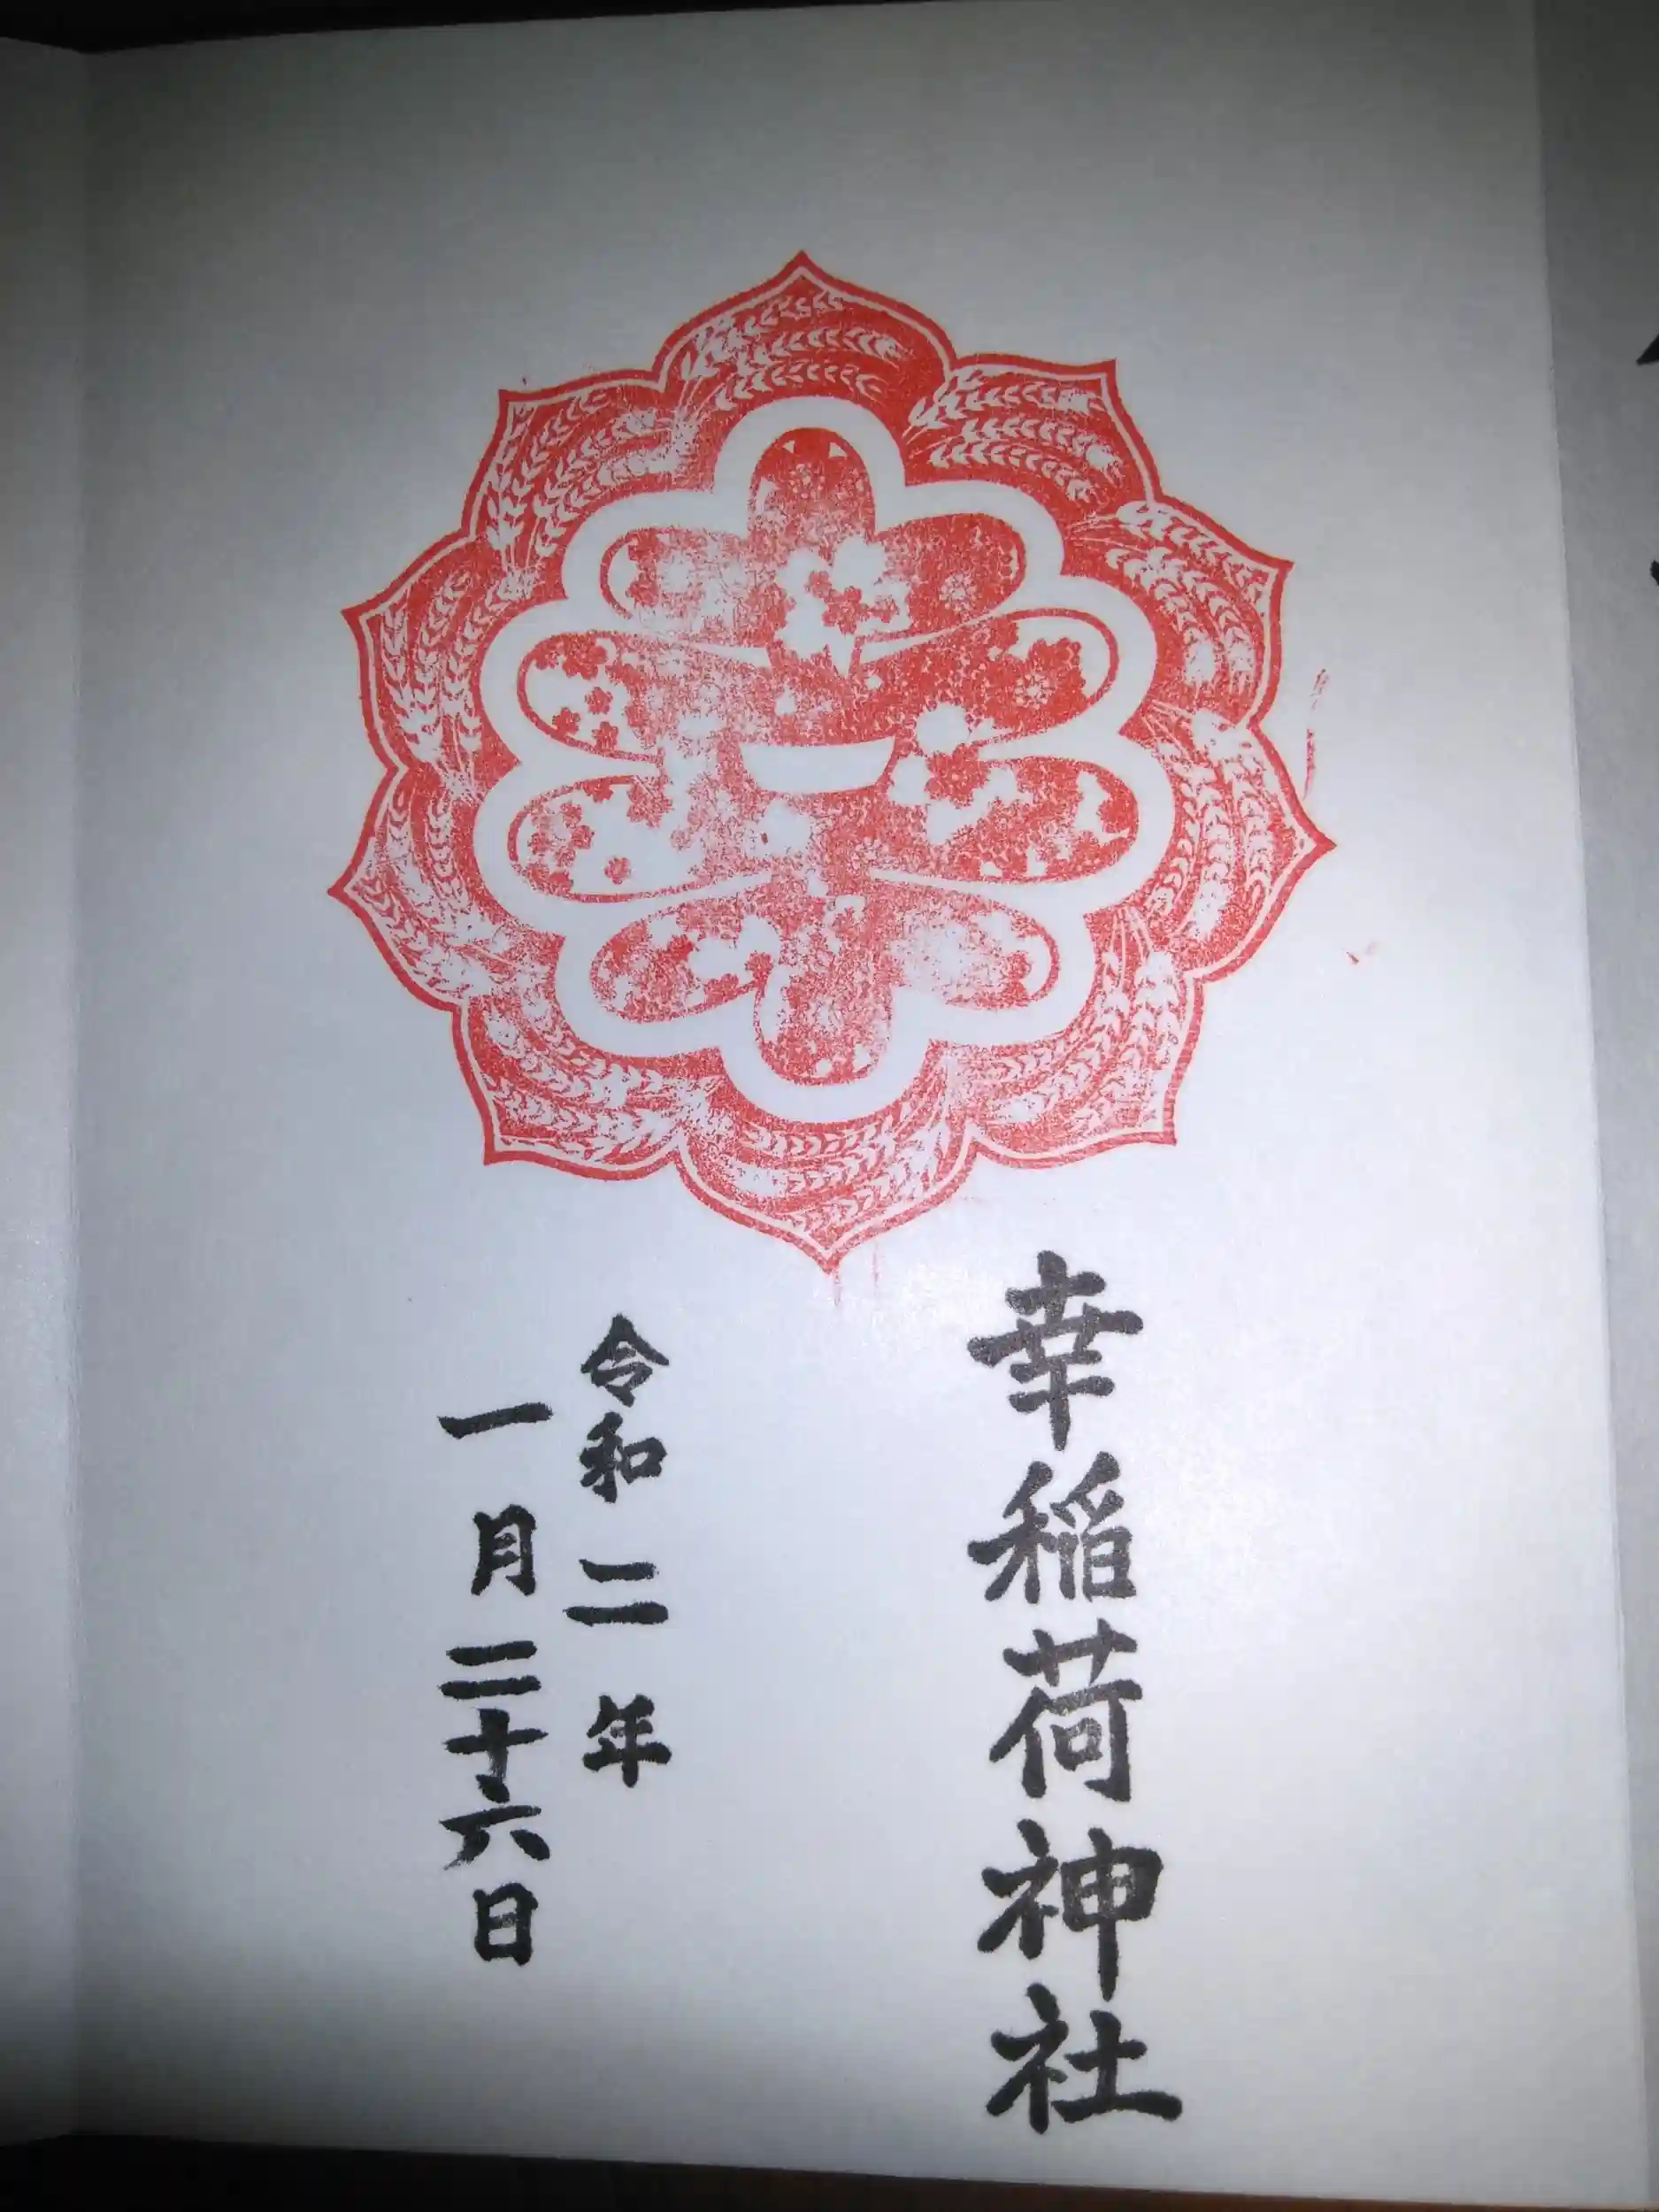 幸稲荷神社
令和二年
一月二十六日